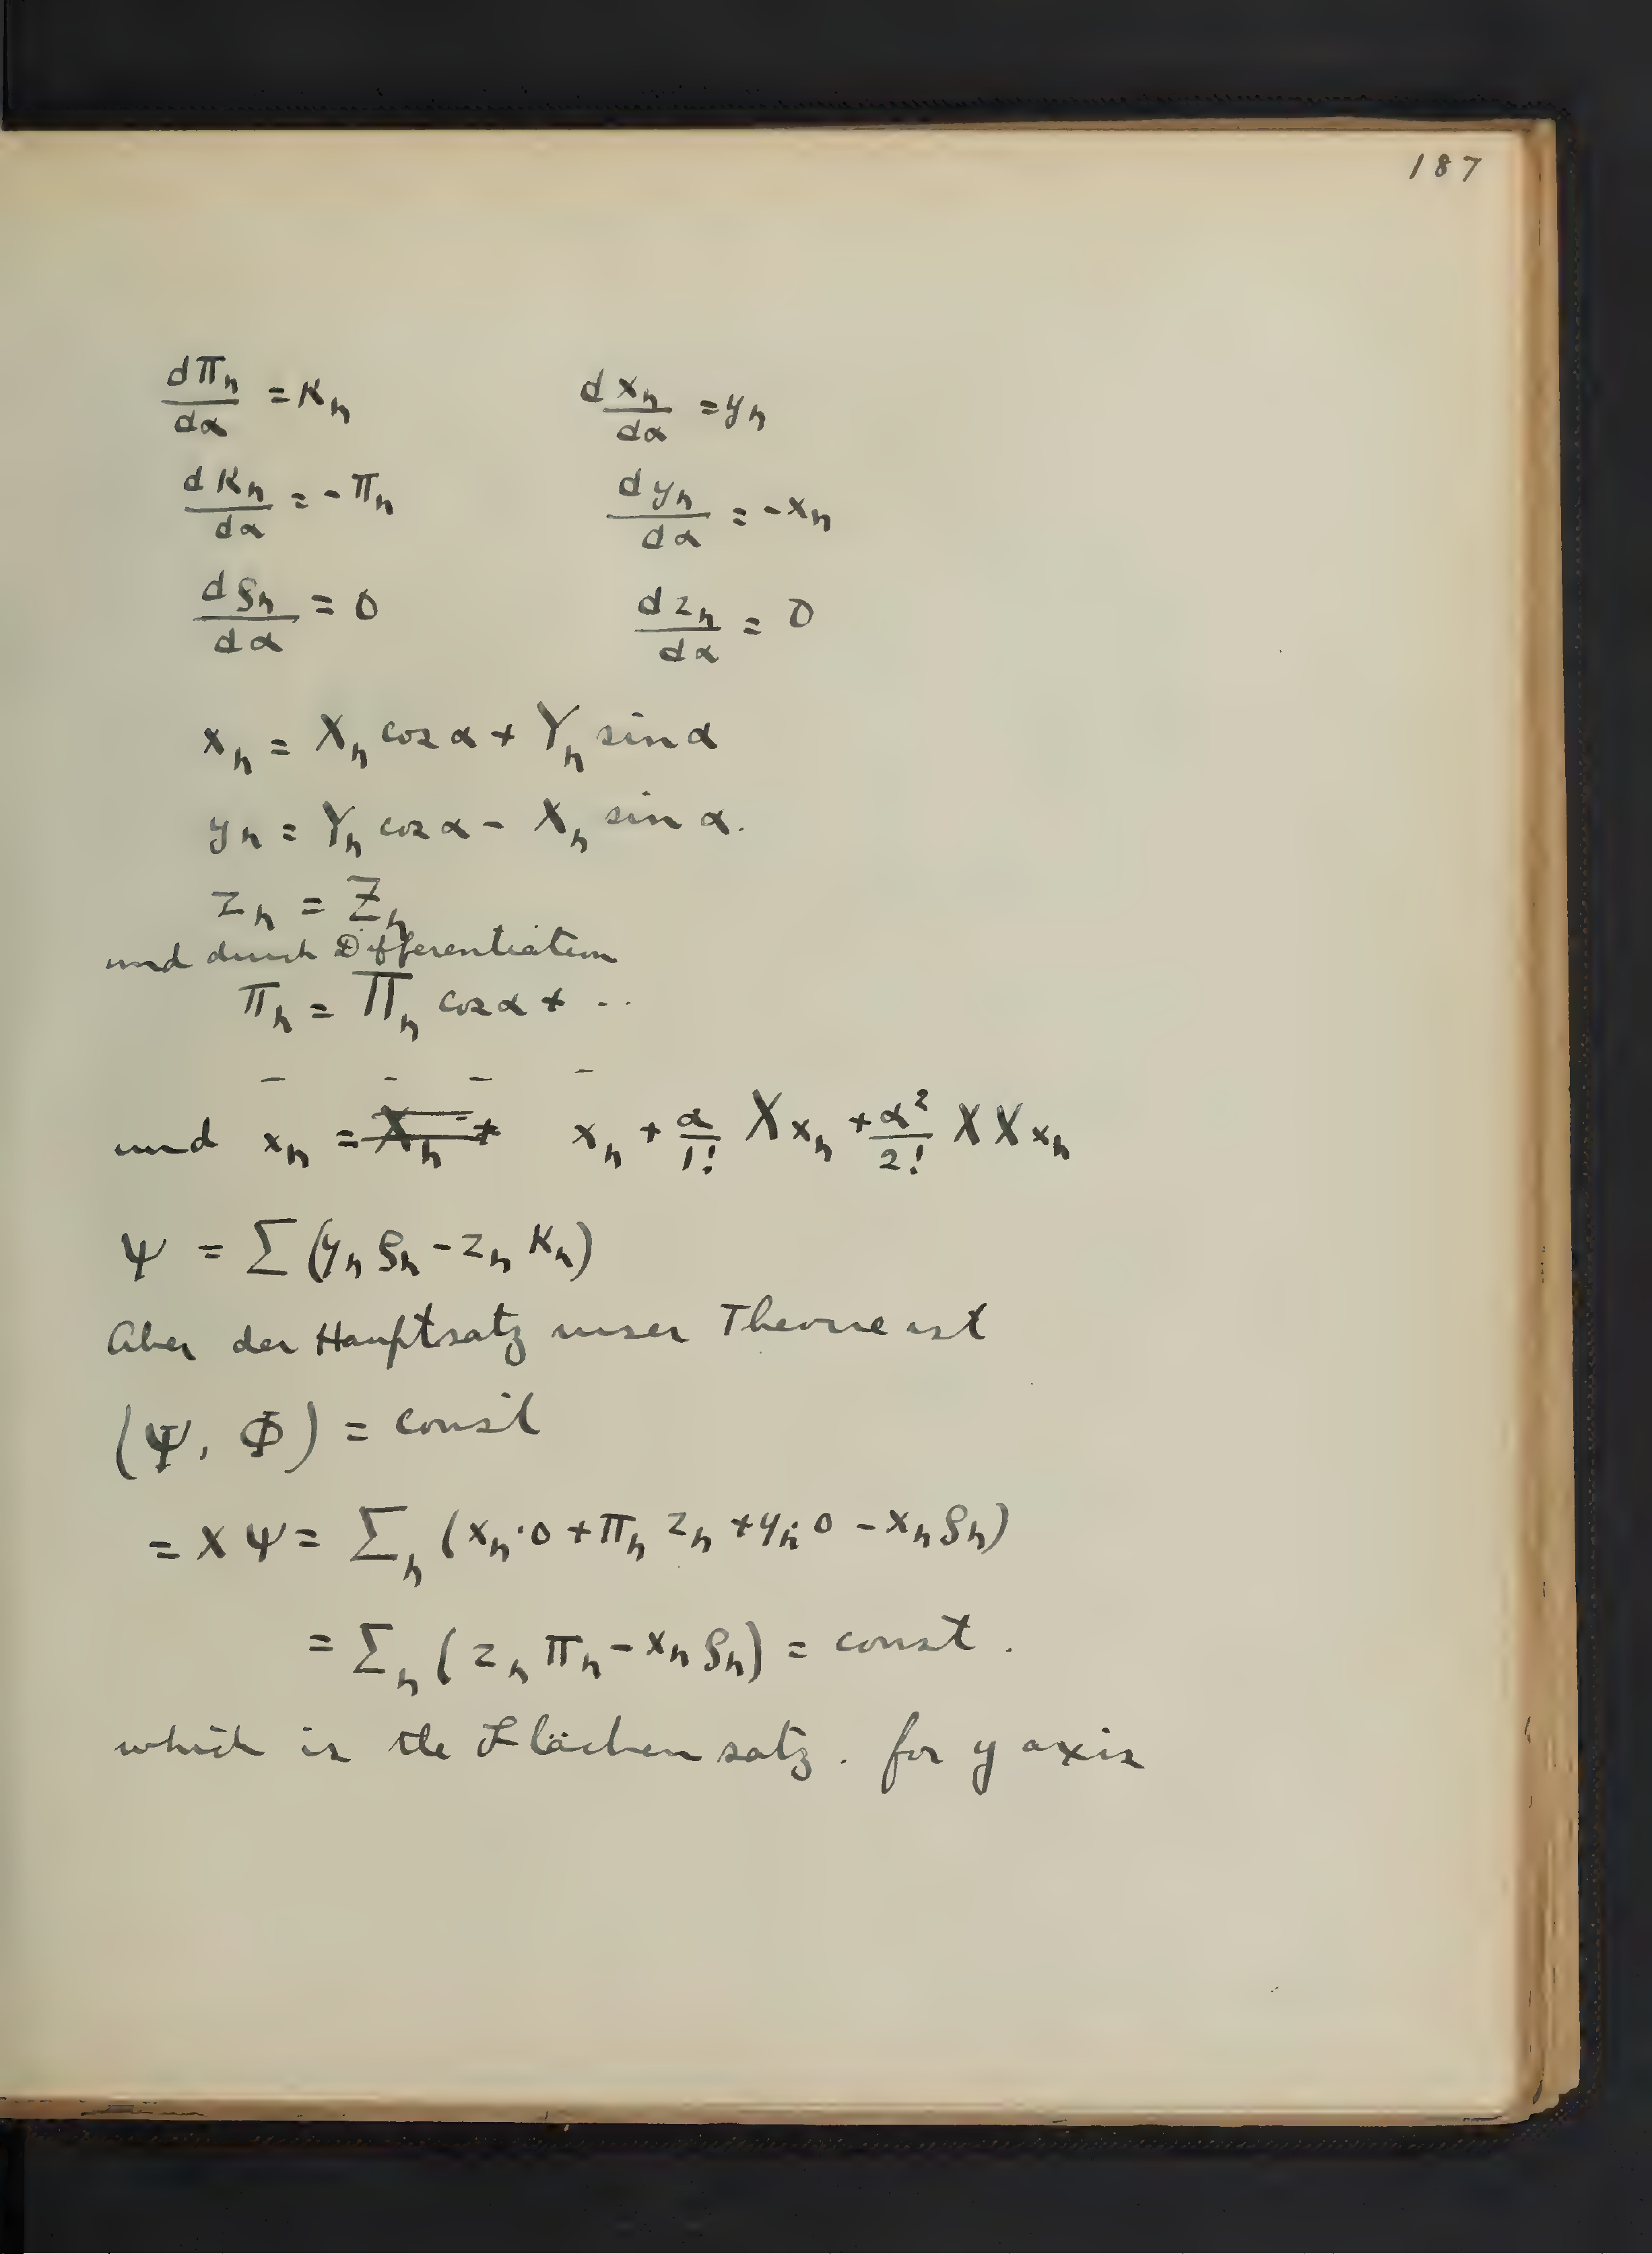 187
dπₙ/dα = κₙ dxₙ/dα = yₙ
dκₙ/dα = -πₙ dyₙ/dα = -xₙ
dρₙ/dα = 0 dzₙ/dα = 0
xₙ = Xₙ cos α + Yₙ sin α
yₙ = Yₙ cos α - Xₙ sin α.
zₙ = Zₙ
und durch Differentiation
πₙ = Πₙ cos α + ...
- - - -
und xₙ = xₙ + α/1! X xₙ + α²/2! X X xₙ
Ψ = Σ (yₙ ρₙ - zₙ κₙ)
Aber der Hauptsatz unser Theorie ist
(Ψ, Φ) = const
= X Ψ = Σₙ (xₙ·0 + πₙ zₙ + yₙ·0 - xₙ ρₙ)
= Σₙ (zₙ πₙ - xₙ ρₙ) = const.
which is the Flächensatz. for y axis